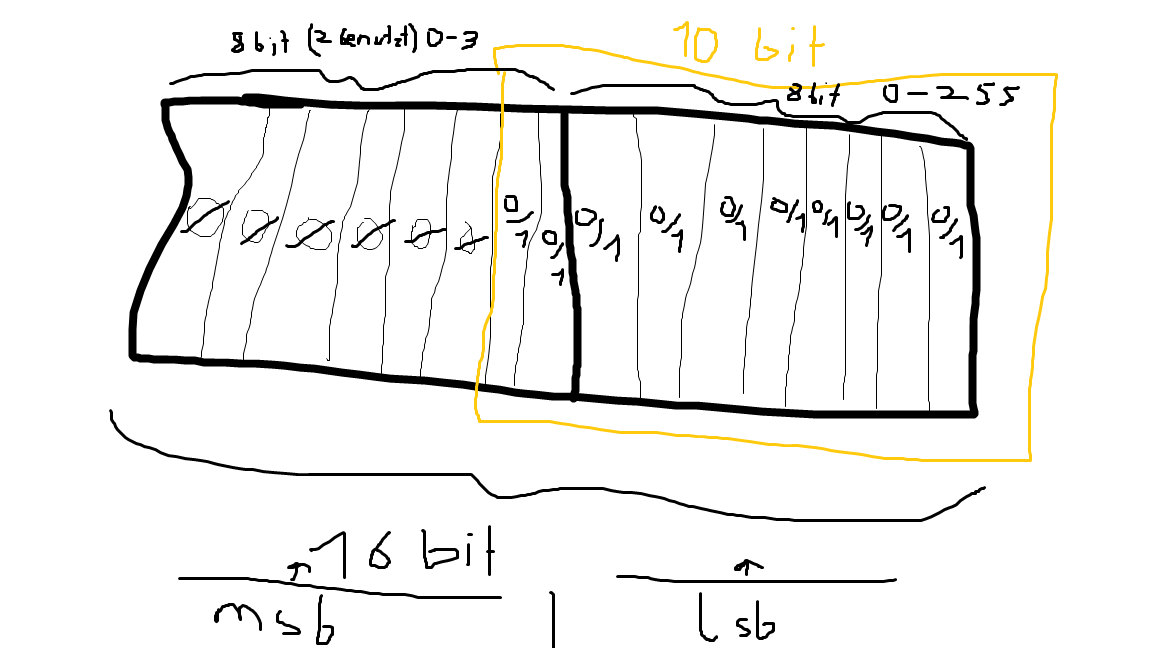 10 bit
8 bit (2 benutzt) 0-3
8 bit 0-255
0 0 0 0 0 0 0/1 0/1 0/1 0/1 0/1 0/1 0/1 0/1 0/1 0/1
16 bit
msb | lsb